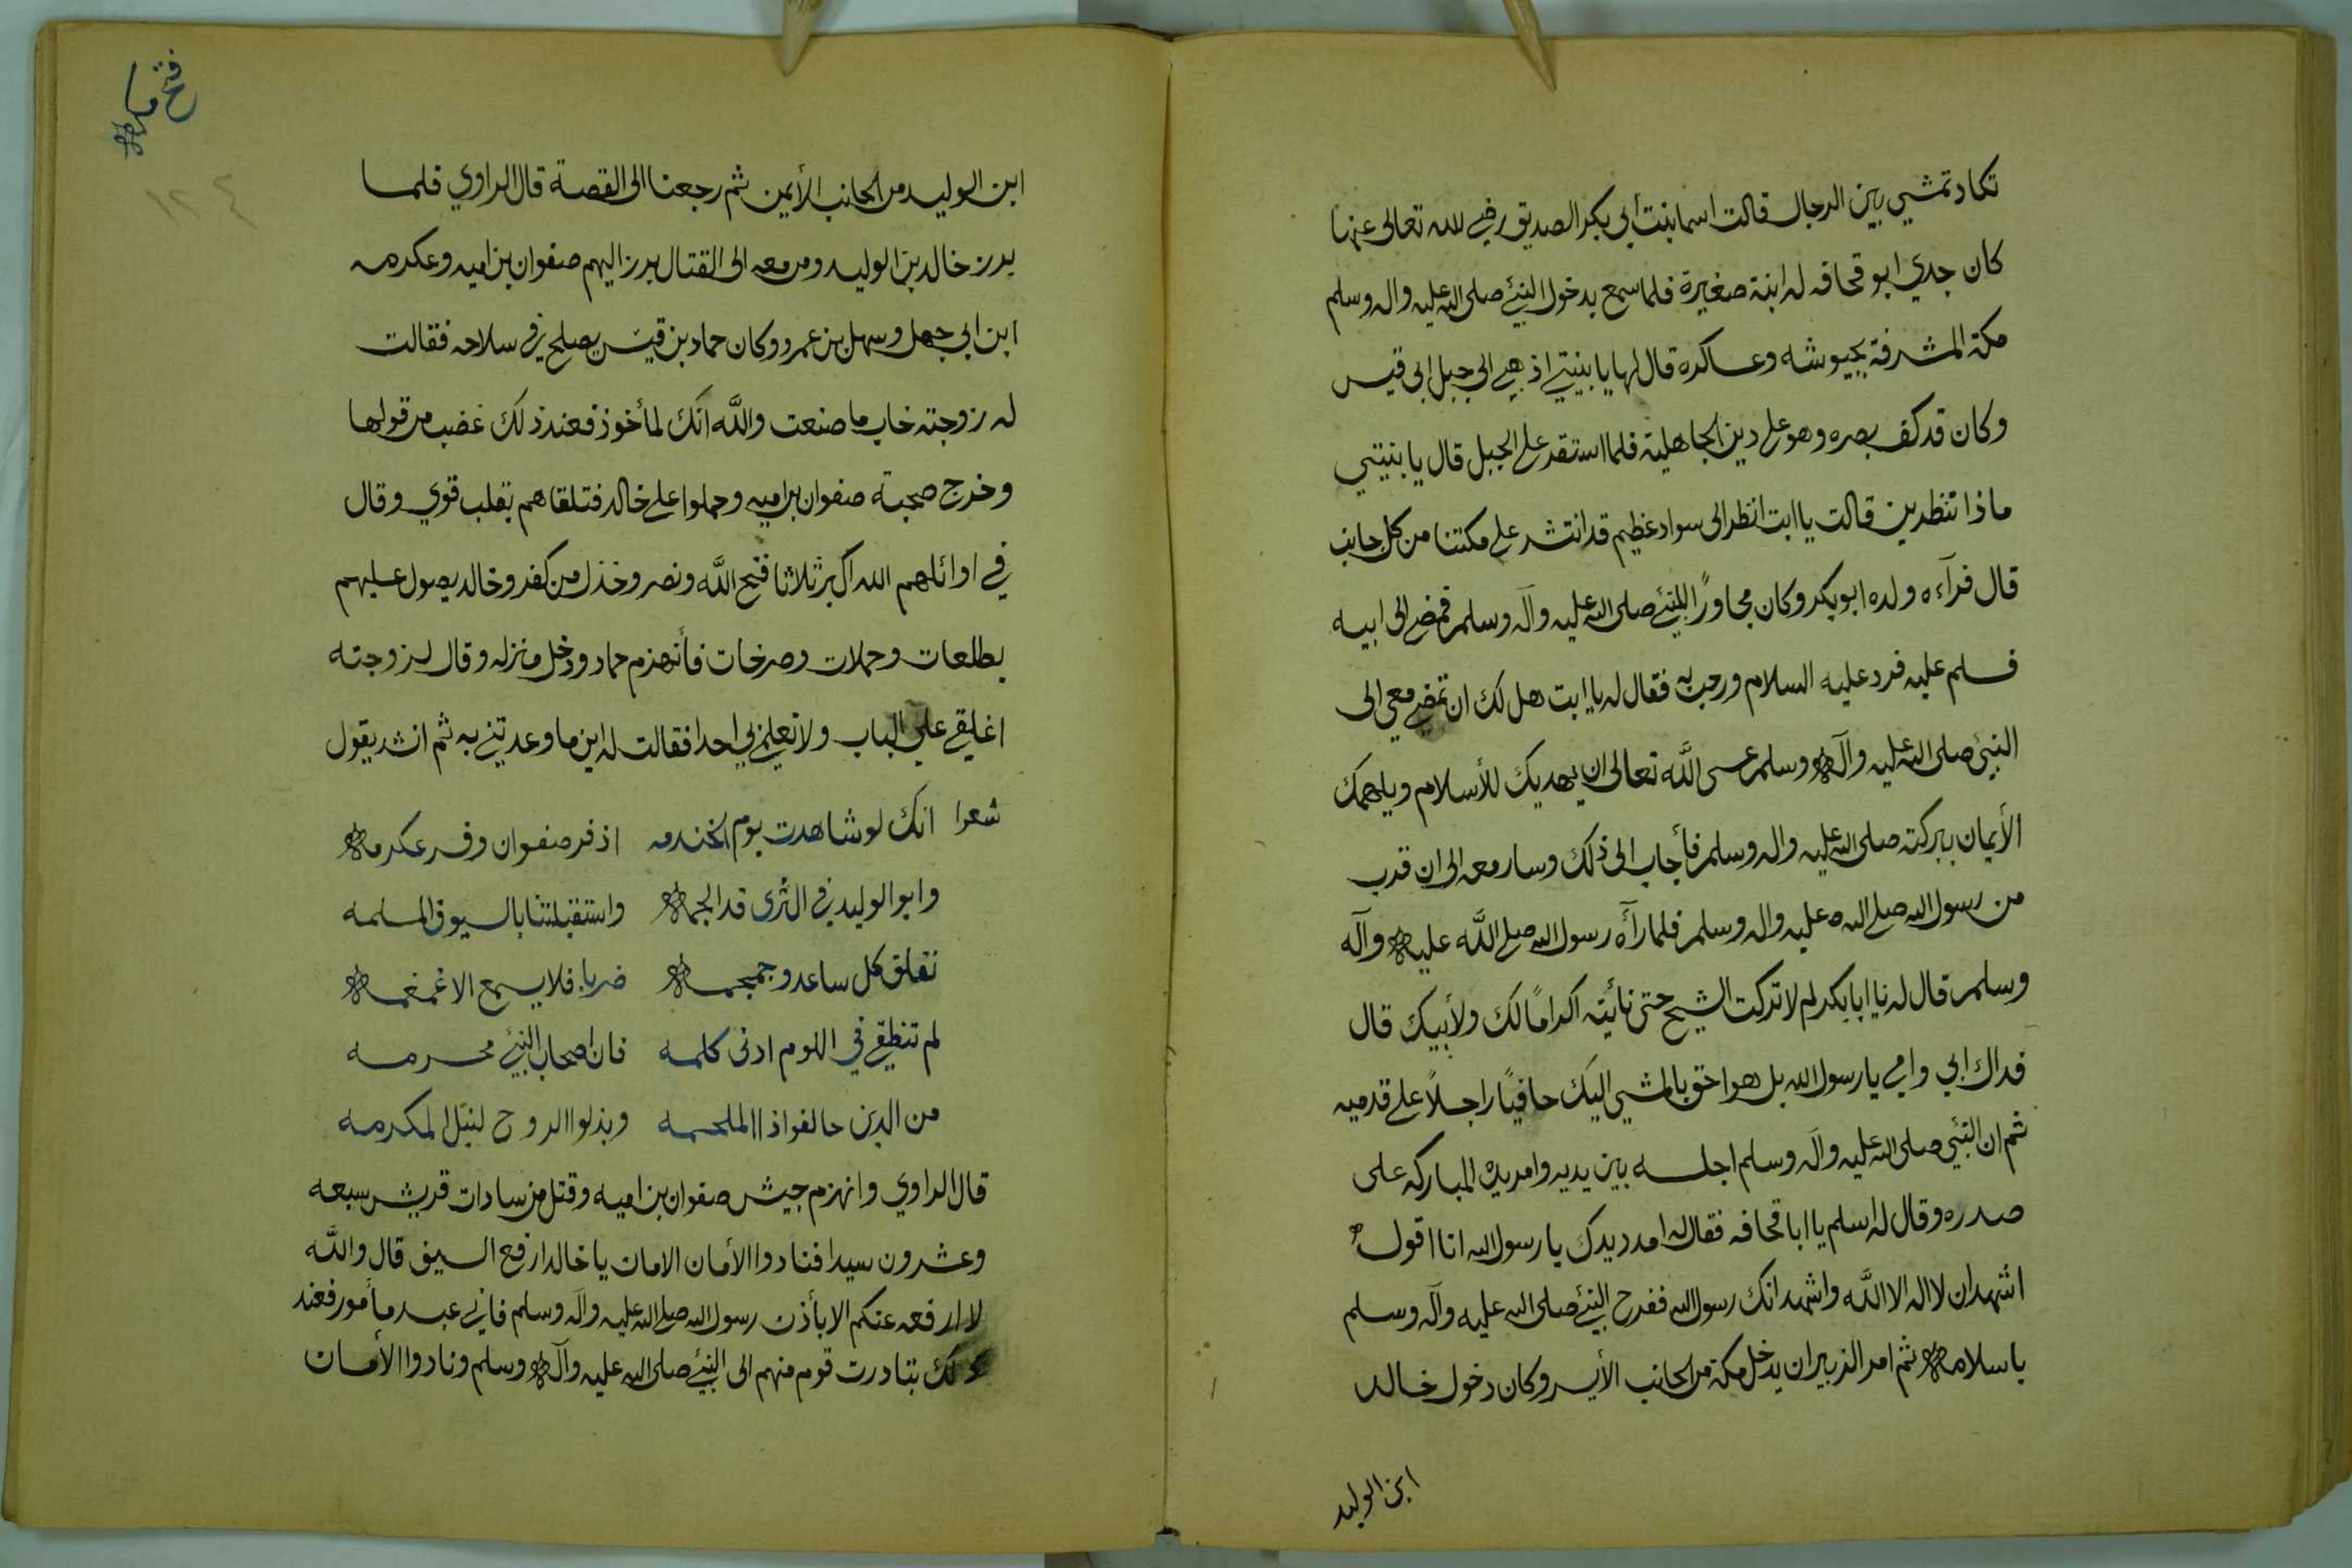 تكاد تمشي بين الرجال قالت اسما بنت أبي بكر الصديق رضي الله تعالى عنها
كان جدي ابو قحافه له ابنة صغيرة فلما سمع بدخول النبي صلى الله عليه واله وسلم
مكة المشرفة بجيوشه وعساكره قال لها يا بنيتي اذهبي الى جبل ابي قيس
وكان قد كف بصره وهو على دين الجاهلية فلما استقر على الجبل قال يا بنيتي
ماذا تنظرين قالت يا ابت انظر الى سواد عظيم قد انتشر على مكتنا من كل جانب
قال فرآءه ولده ابو بكر وكان مجاورًا للنبي صلى الله عليه وآله وسلم فمضى الى ابيه
فسلم عليه فرد عليه السلام ورحب به فقال له يا ابت هل لك ان تمضي معي الى
النبي صلى الله عليه وآله وسلم عسى الله تعالى ان يهديك للأسلام ويلهمك
الأيمان ببركته صلى الله عليه واله وسلم فأجاب الى ذلك وسار معه الى ان قرب
من رسول الله صلى الله عليه واله وسلم فلما رآه رسول الله صلى الله عليه وآله
وسلم قال له يا ابا بكر لم لا تركت الشيخ حتى نائيته اكرامًا لك ولأبيك قال
فداك ابي وامي يا رسول الله بل هو احق بالمشي اليك حافيًا راجلاً على قدميه
ثم ان النبي صلى الله عليه وآله وسلم اجلسه بين يديه وامر يده المباركه على
صدره وقال له اسلم يا ابا قحافه فقال له امدد يدك يا رسول الله انا اقول
اشهد ان لا اله الا الله واشهد انك رسول الله ففرح النبي صلى الله عليه وآله وسلم
باسلامه ثم امر الزبير ان يدخل مكة من الجانب الأيسر وكان دخول خالد
ابن الوليد
فتح مكه
١٢٤
ابن الوليد من الجانب الأيمن ثم رجعنا الى القصة قال الراوي فلما
برز خالد بن الوليد ومن معه الى القتال برز اليهم صفوان بن اميه وعكرمه
ابن ابي جهل وسهل بن عمرو وكان حماد بن قيس يصلح في سلاحه فقالت
له زوجته خاب ما صنعت والله انك لمأخوذ فعند ذلك غضب من قولها
وخرج صحبة صفوان بن اميه وحملوا على خالد فتلقاهم بقلب قوي وقال
في اوائلهم الله اكبر ثلاثا فتح الله ونصر وخذل من كفر وخالد يصول عليهم
بطلعات وحملات وصرخات فأنهزم حماد ودخل منزله وقال لزوجته
اغلقي علي الباب ولا تعلمي بي احدا فقالت له اين ما وعدتني به ثم انشد يقول
شعرا انك لو شاهدت يوم الخندمه اذ فر صفوان وفر عكرمه
وابو الوليد في الثرى قد الجمه واستقبلتنا بالسيوف المسلمه
نفلق كل ساعد وجمجمه ضربا فلا يسمع الا غمغمه
لم تنطقي في اللوم ادنى كلمه فان اصحاب النبي محرمه
من الدين حالفوا ذا الملحمه وبذلوا الروح لنيل المكرمه
قال الراوي وانهزم جيش صفوان بن اميه وقتل من سادات قريش سبعه
وعشرون سيدا فنادوا الأمان الامان يا خالد ارفع السيف قال والله
لا ارفعه عنكم الا بأذن رسول الله صلى الله عليه وآله وسلم فاني عبد مأمور فعند
ذلك تبادرت قوم منهم الى النبي صلى الله عليه وآله وسلم ونادوا الأمان